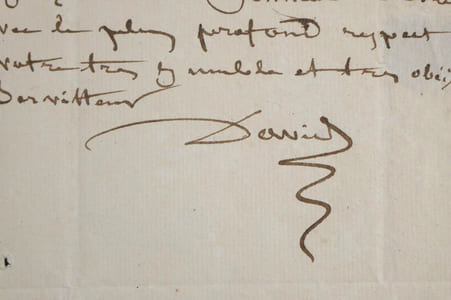 avec le plus profond respect
votre tres humble et tres obéi
Servitteur
David